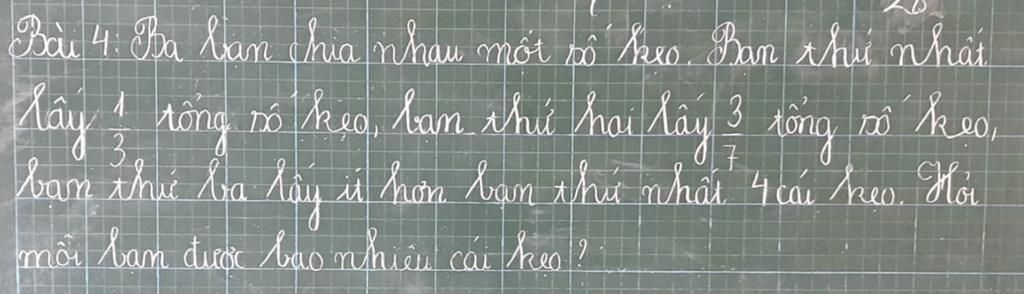 Bài 4: Ba bạn chia nhau một số kẹo. Bạn thứ nhất
lấy 1/3 tổng số kẹo, bạn thứ hai lấy 3/7 tổng số kẹo,
bạn thứ ba lấy ít hơn bạn thứ nhất 4 cái kẹo. Hỏi
mỗi bạn được bao nhiêu cái kẹo?